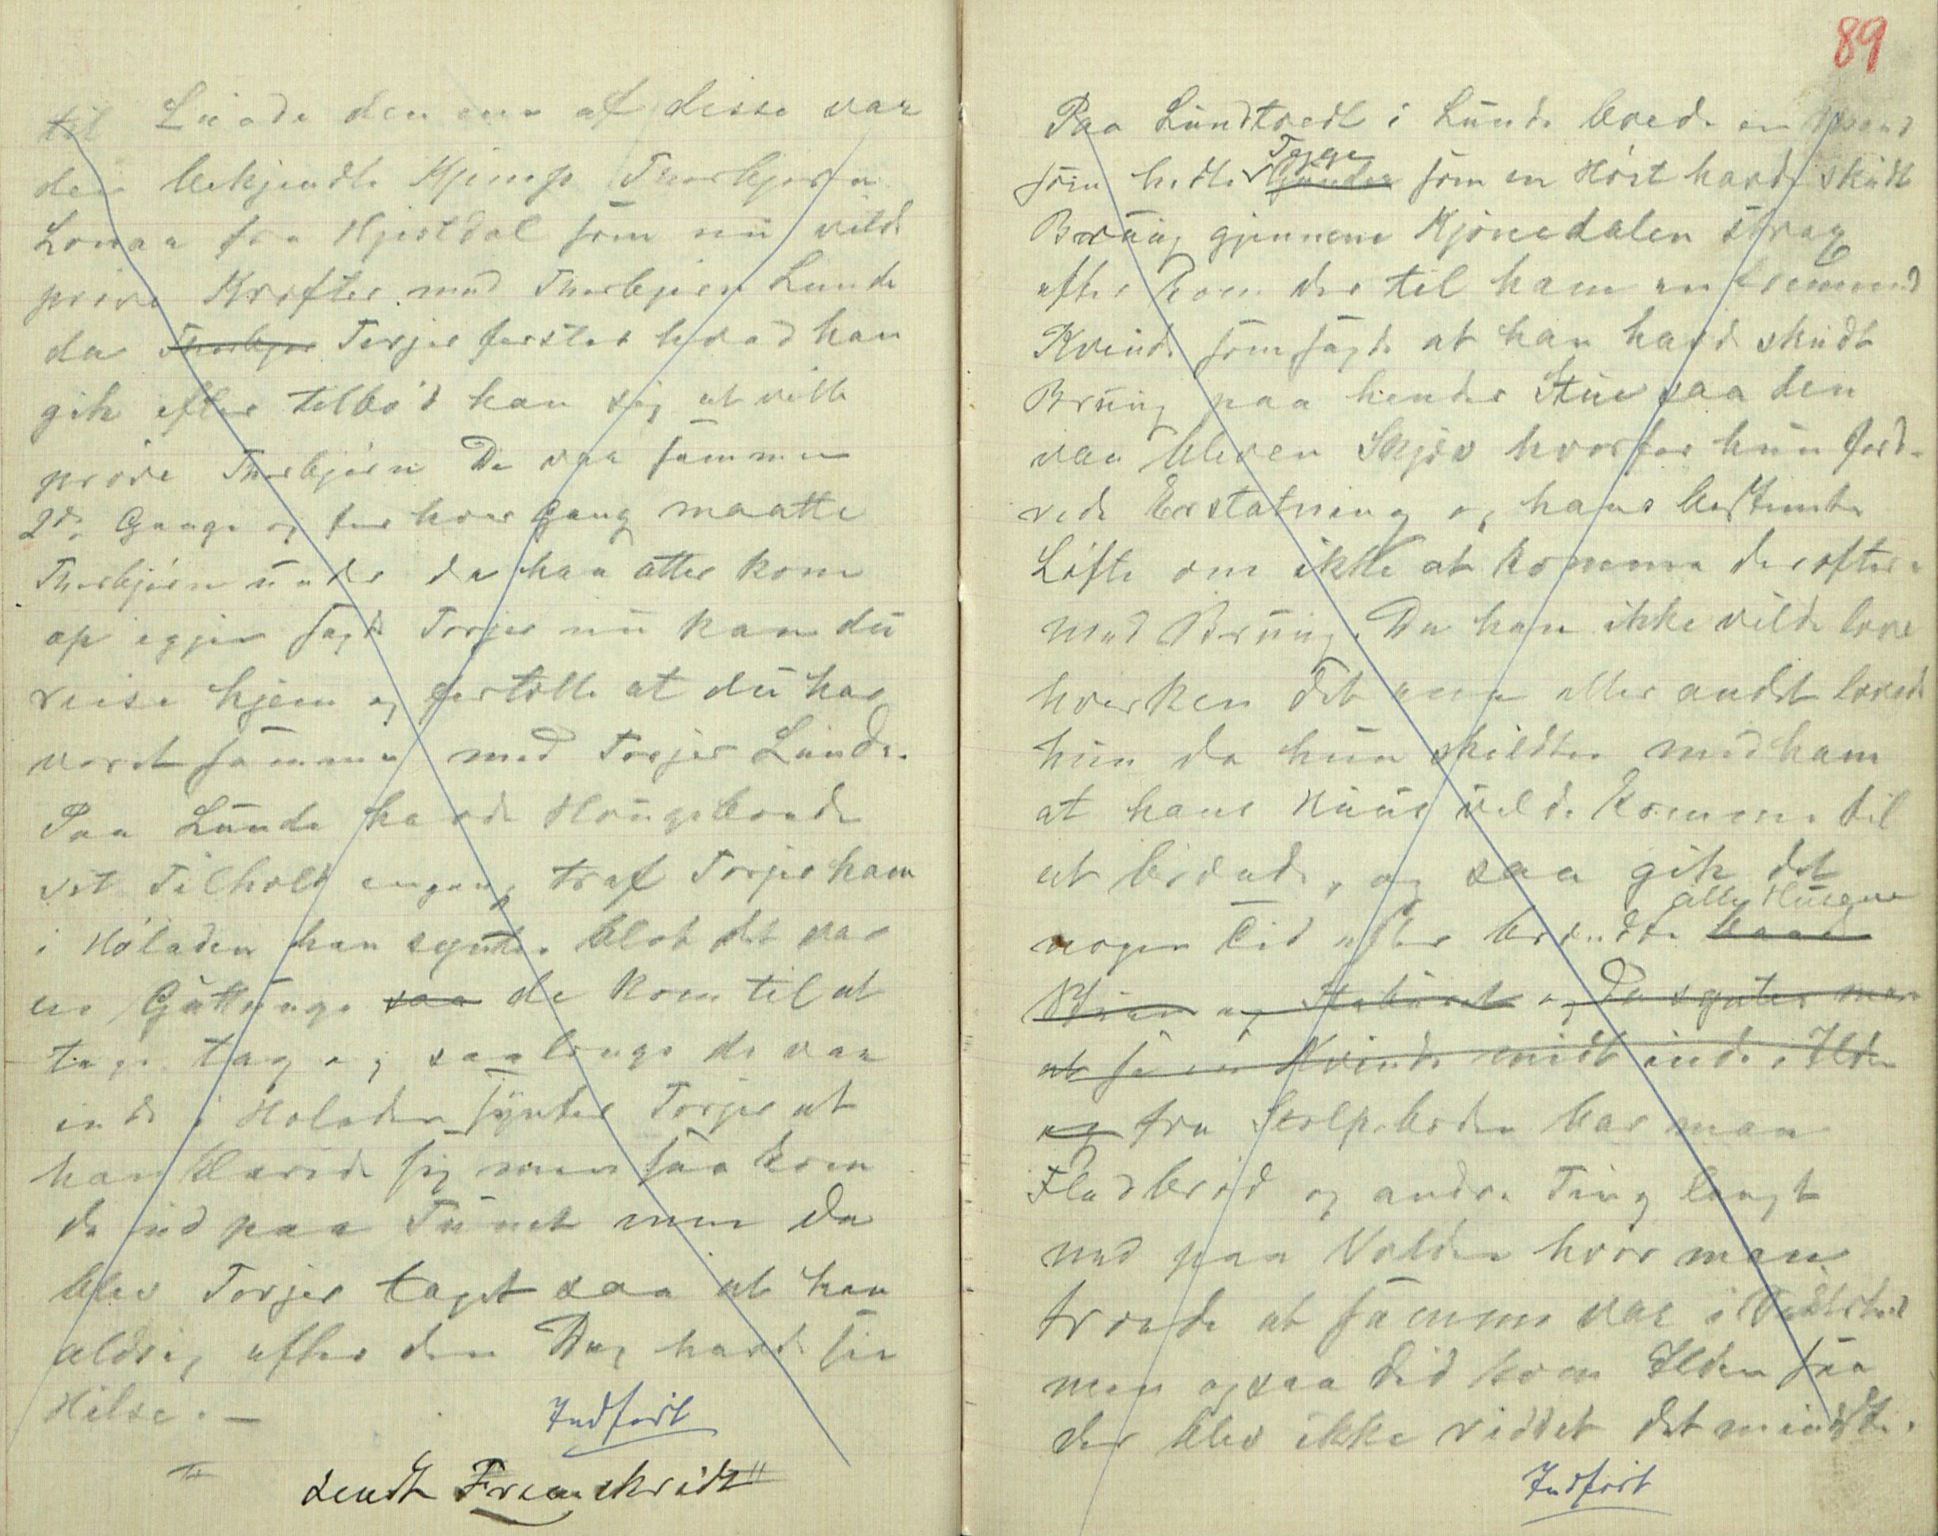 til Lunde den ene af disse var
den bekjendte Kjempe Thorbjørn
Lonar fra Hjertdal som nu vilde
prøve Kræfter med Thorbjørn Lunde
da Thorbjør Torjer forstod hvad han
gik efter tilbød han sig at ville
prøve Thorbjørn De var sammen
2de Gange og for hver Gang maatte
Thorbjørn under da han atter kom
op igjen sagde Torjer nu kan du
reise hjem og fortælle at du har
været sammen med Torjer Lunde.
Paa Lunde havde Hougebonde
sit Tilhold engang traf Torjer ham
i Høladen han syntes blot det var
en Guttunge saa de kom til at
tage tag og saalenge de var
inde i Høladen syntes Torjer at
han klarede sig men saa kom
de ud paa Tunet men da
blev Torjer taget saa at han
aldrig efter den Dag havde sin
Hilse. —
Indført
sendt Fremskridt"
89
Paa Lundtvedt i Lunde boede en Mand
Tegge
som hedte Gunder som en Høst havde skudt
Bruug gjennem Kjønedalen strax
efter kom der til ham en fremmed
Kvinde som sagde at han havde skudt
Bruug paa hendes Stue saa den
var bleven Skjæv hvorfor hun ford-
rede Erstatning og hans bestemte
Løfte om ikke at komme derofter
med Bruug. Da han ikke vilde love
hverken det ene eller andet lovede
hun da hun skildtes med ham
at hans Huus vilde komme til
at brænde, og saa gik det
alle Husene
nogen Tid efter brændte baade
Stuen og Staburet og da syntes man
at se en Kvinde midt inde i Ilden
og fra Stolpeboden bar man
Fladbrød og andre Ting langt
ned paa Volden hvor man
troede at samme var i
men ogsaa did kom Ilden saa
der blev ikke reddet det mindste.
Indført